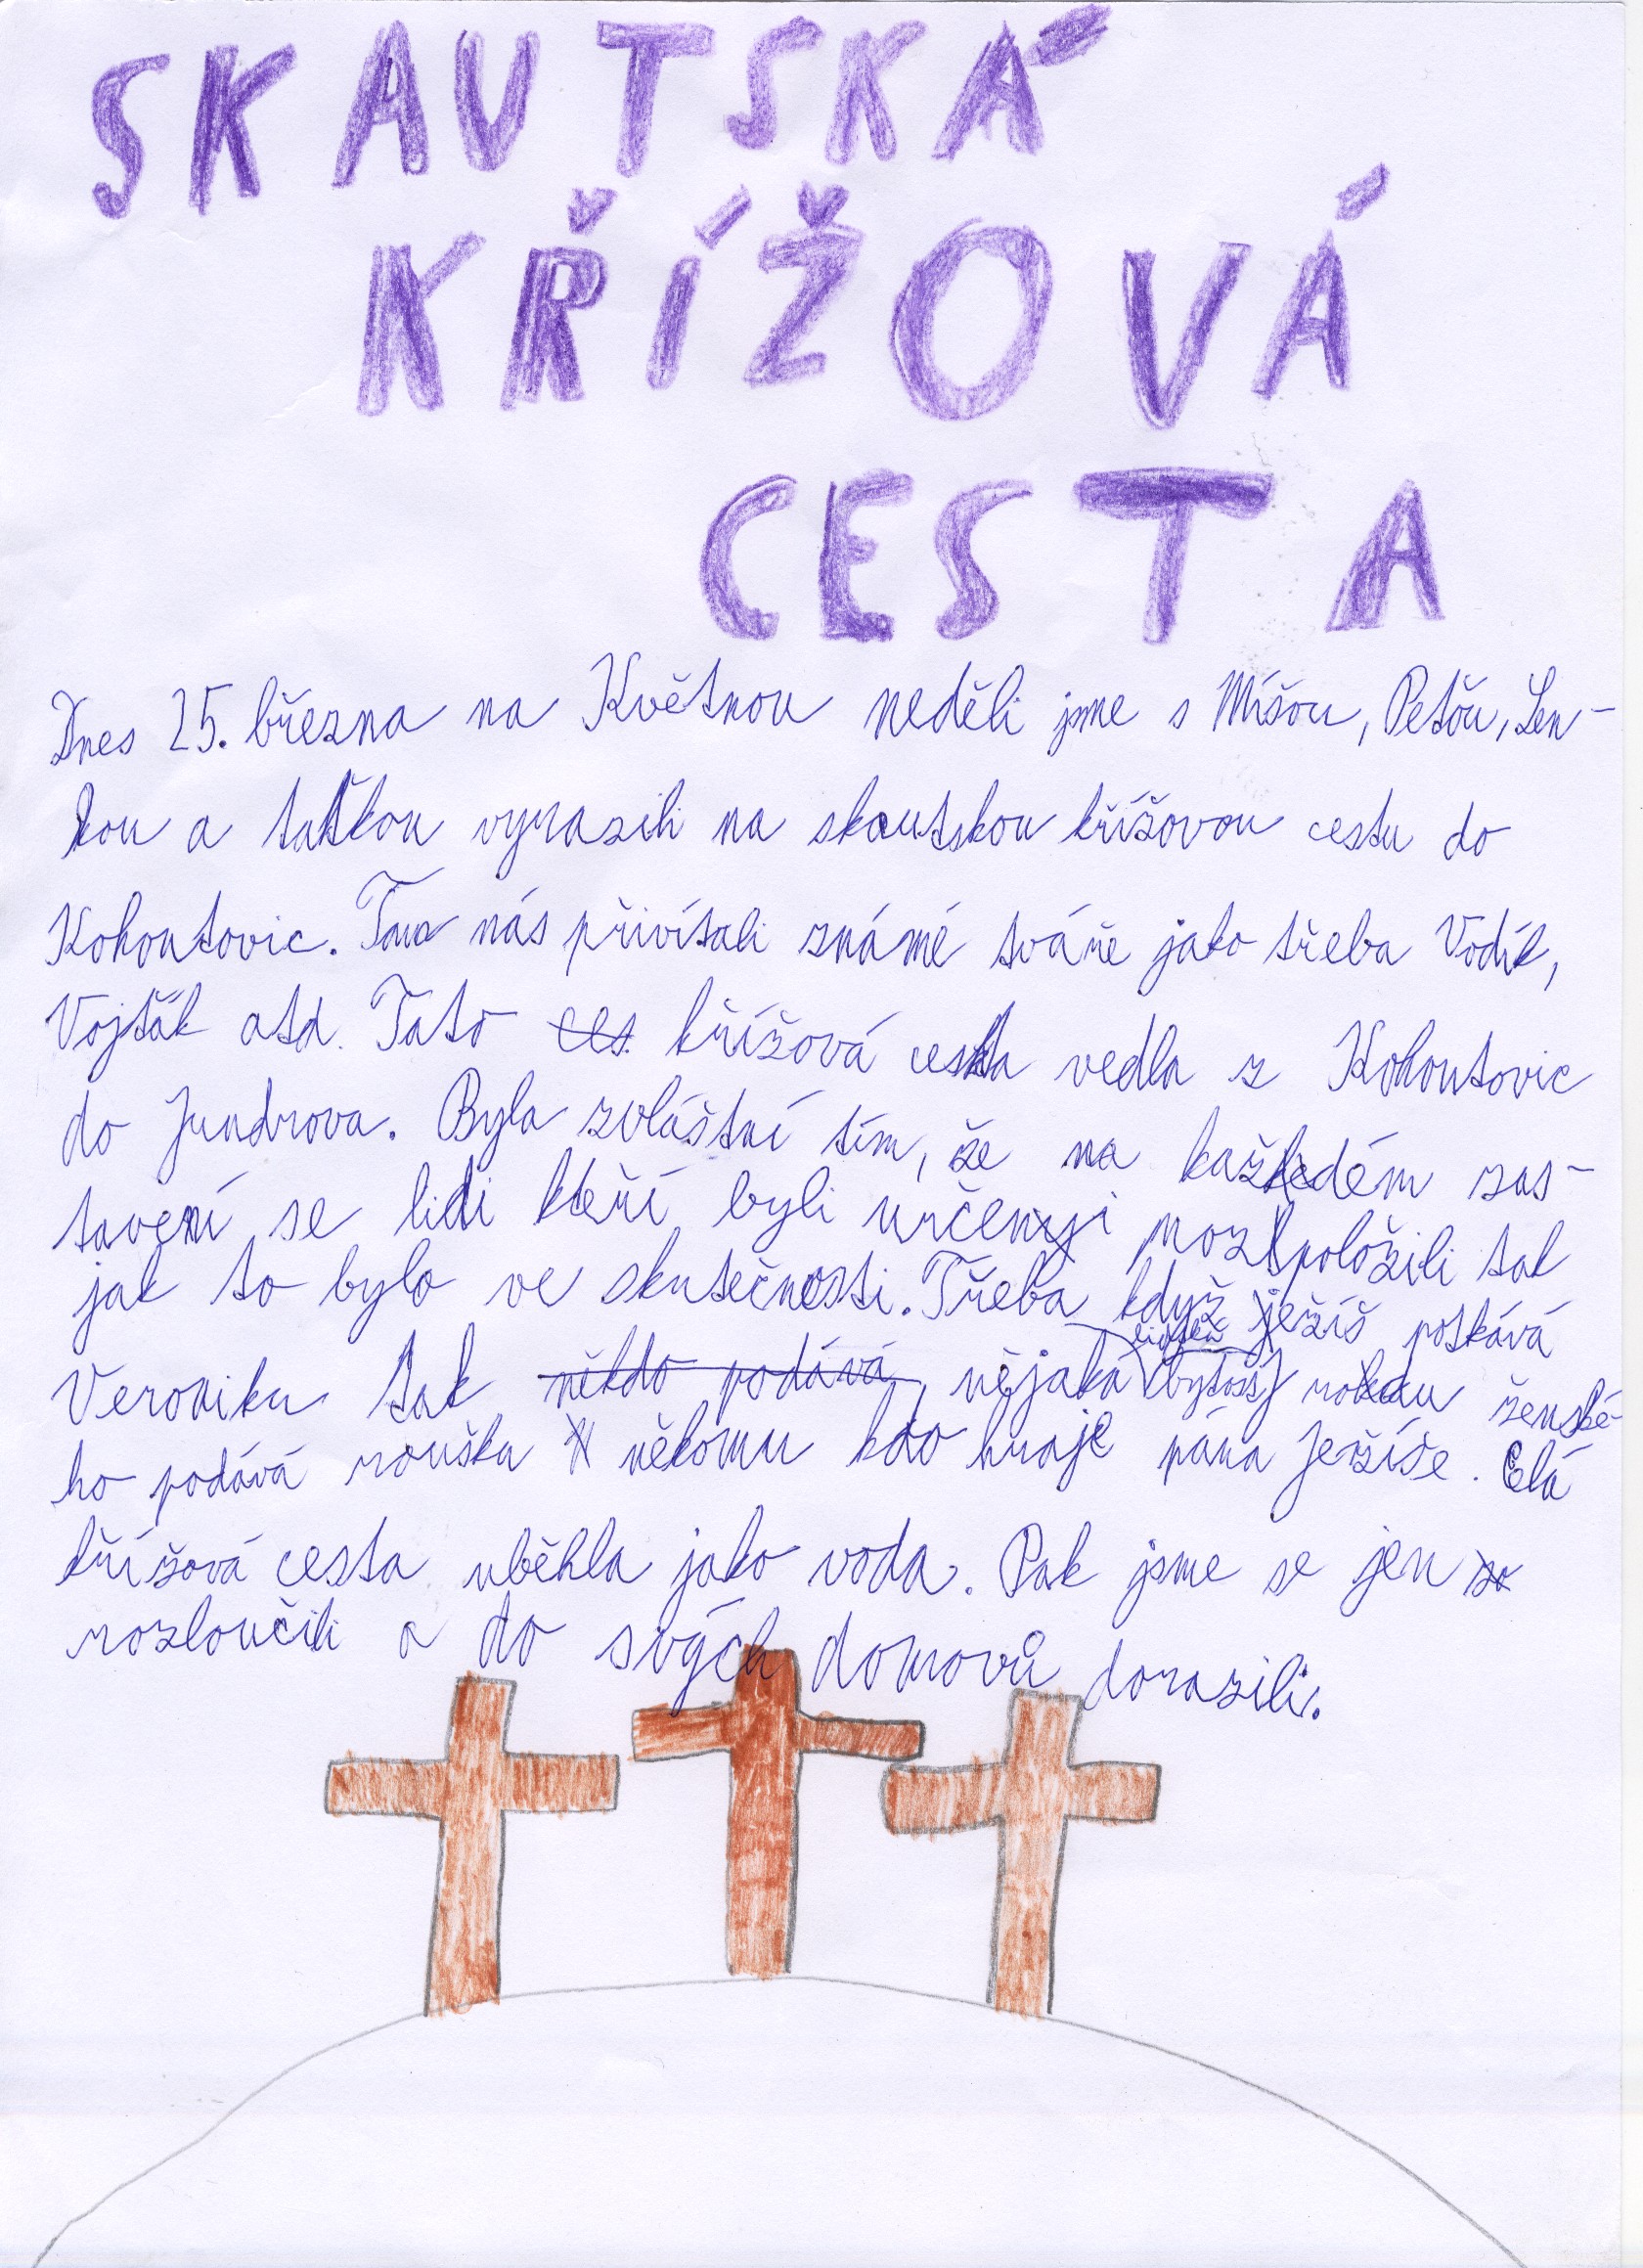 SKAUTSKÁ
KŘÍŽOVÁ
CESTA
Dnes 25. března na Květnou neděli jsme s Míšou, Peťou, Len-
kou a taťkou vyrazili na skautskou křížovou cestu do
Kohoutovic. Tam nás přivítali známé tváře jako třeba Vodík,
Vojťák atd. Tato ces křížová cesta vedla z Kohoutovic
do Jundrova. Byla zvláštní tím, že na každém zas-
tavení se lidi kteří byli určeni rozpoložili tak
jak to bylo ve skutečnosti. Třeba když ježíš potkává
Veroniku tak někdo podává, nějaká bytost rodu ženské-
ho podává roušku někomu kdo hraje pána Ježíše. Celá
křížová cesta uběhla jako voda. Pak jsme se jen
rozloučili a do svých domovů dorazili.